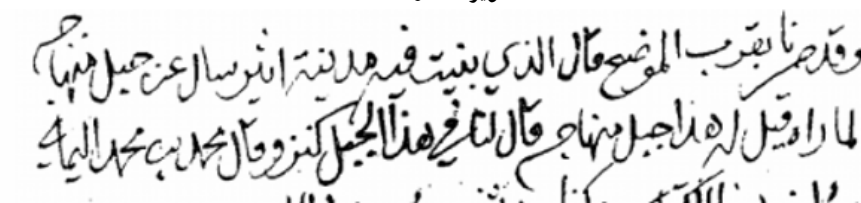 وقد صرنا بقرب الموضع قال الذي بنيت فيه مدينة اشير سال عن جبل منهاج
لما راه قيل له هذا جبل منهاج قال لنا في هذا الجبل كنز وقال محمد بن محمد اليماني